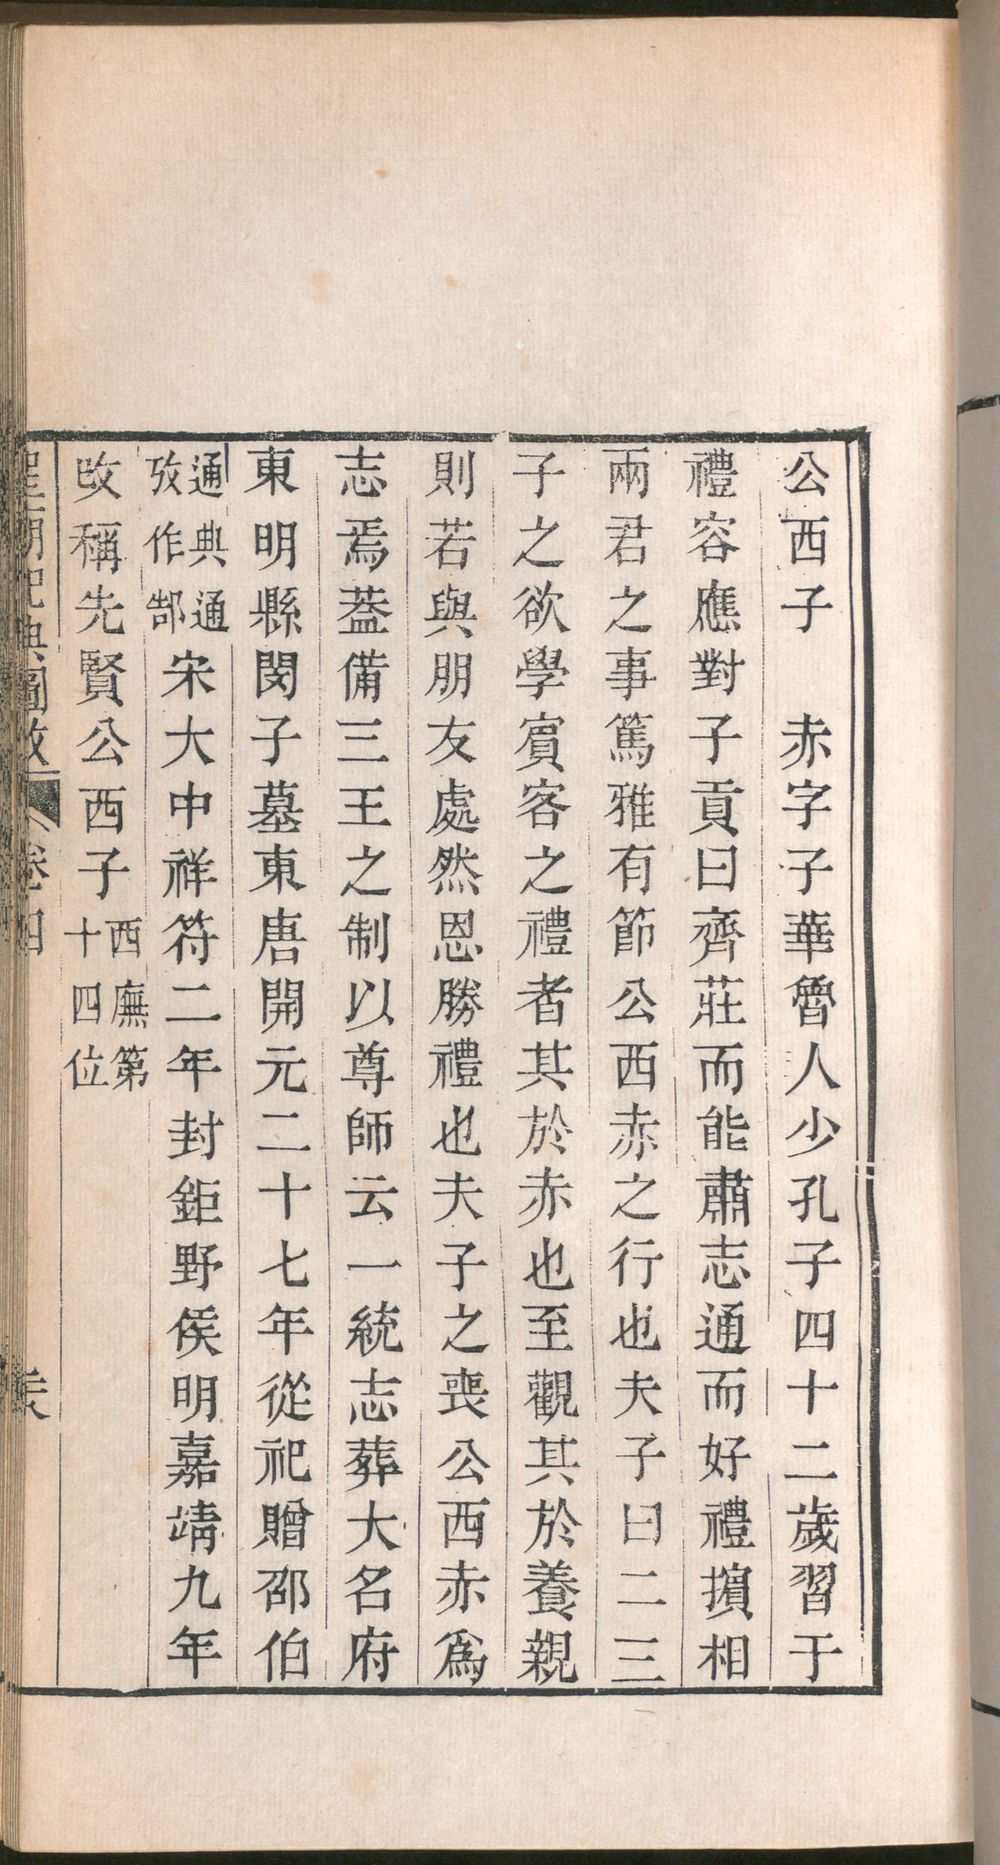 公西子　赤字子華魯人少孔子四十二歲習于
禮容應對子貢曰齊莊而能肅志通而好禮擯相
兩君之事篤雅有節公西赤之行也夫子曰二三
子之欲學賓客之禮者其於赤也至觀其於養親
則若與朋友處然恩勝禮也夫子之喪公西赤爲
志焉葢備三王之制以尊師云一統志葬大名府
東明縣閔子墓東唐開元二十七年從祀贈邵伯
通典通
攷作郜
宋大中祥符二年封鉅野侯明嘉靖九年
攺稱先賢公西子
西廡第
十四位
聖廟祀典圖攷
卷四